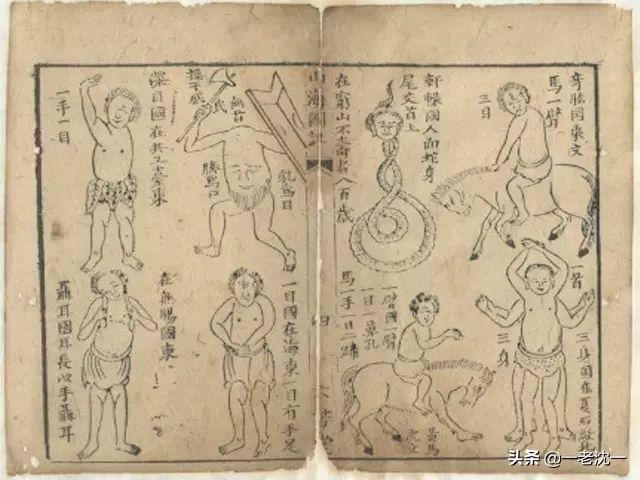 奇肱國東文
馬一臂
三目
軒轅國人面蛇身
尾交首上
在窮山不壽者八百歲
一首
三身
三身國在夏后啟北
一臂國一臂
一目一鼻孔
馬一手一目二蹄
黃馬
虎文
山海圖
四
操干戚
無首
乳為目
臍為口
深目國在共工臺東
一手一目
一目國在海東一目有手足
在無腸國東
聶耳國耳長以手聶耳
头条 @一老沈一